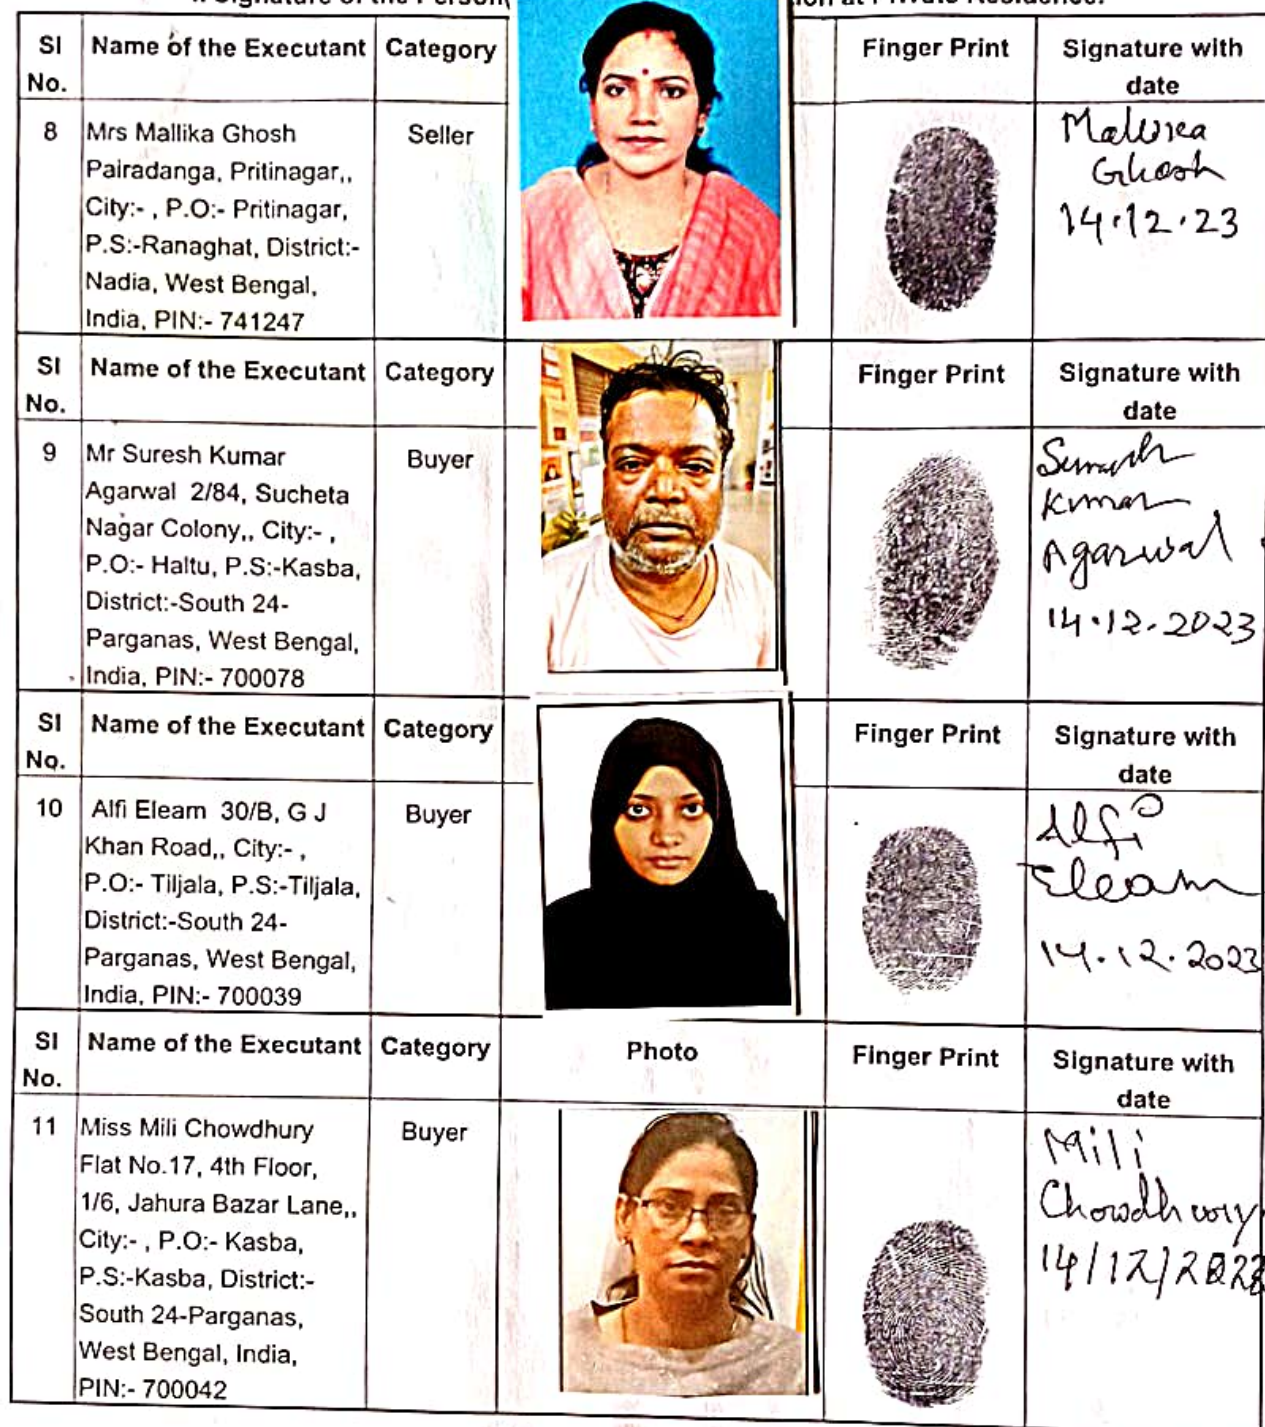 Signature of the Person
on at Private Residence.
Sl No. Name of the Executant Category Finger Print Signature with date
8 Mrs Mallika Ghosh Seller
Pairadanga, Pritinagar,,
City:- , P.O:- Pritinagar,
P.S:-Ranaghat, District:-
Nadia, West Bengal,
India, PIN:- 741247
Ghosh
14.12.23
Sl No. Name of the Executant Category Finger Print Signature with date
9 Mr Suresh Kumar Buyer
Agarwal 2/84, Sucheta
Nagar Colony,, City:- ,
P.O:- Haltu, P.S:-Kasba,
District:-South 24-
Parganas, West Bengal,
India, PIN:- 700078
Suresh
Kumar
Agarwal
14.12.2023
Sl No. Name of the Executant Category Finger Print Signature with date
10 Alfi Eleam 30/B, G J Buyer
Khan Road,, City:- ,
P.O:- Tiljala, P.S:-Tiljala,
District:-South 24-
Parganas, West Bengal,
India, PIN:- 700039
Alfi
Eleam
14.12.2023
Sl No. Name of the Executant Category Photo Finger Print Signature with date
11 Miss Mili Chowdhury Buyer
Flat No.17, 4th Floor,
1/6, Jahura Bazar Lane,,
City:- , P.O:- Kasba,
P.S:-Kasba, District:-
South 24-Parganas,
West Bengal, India,
PIN:- 700042
Mili
Chowdhury
14/12/2023